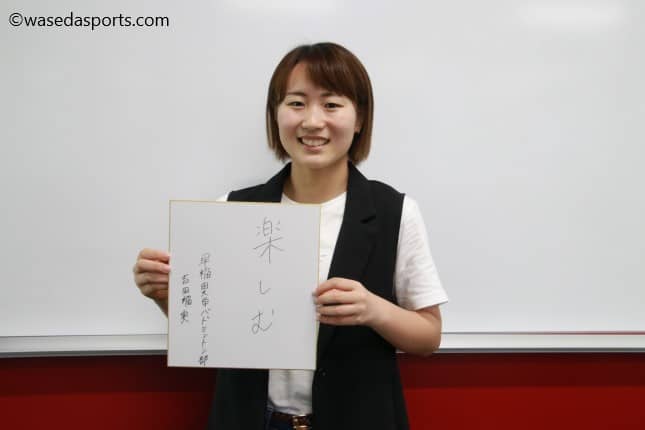 ©wasedasports.com
楽しむ
早稲田大学バドミントン部
吉田瑠実